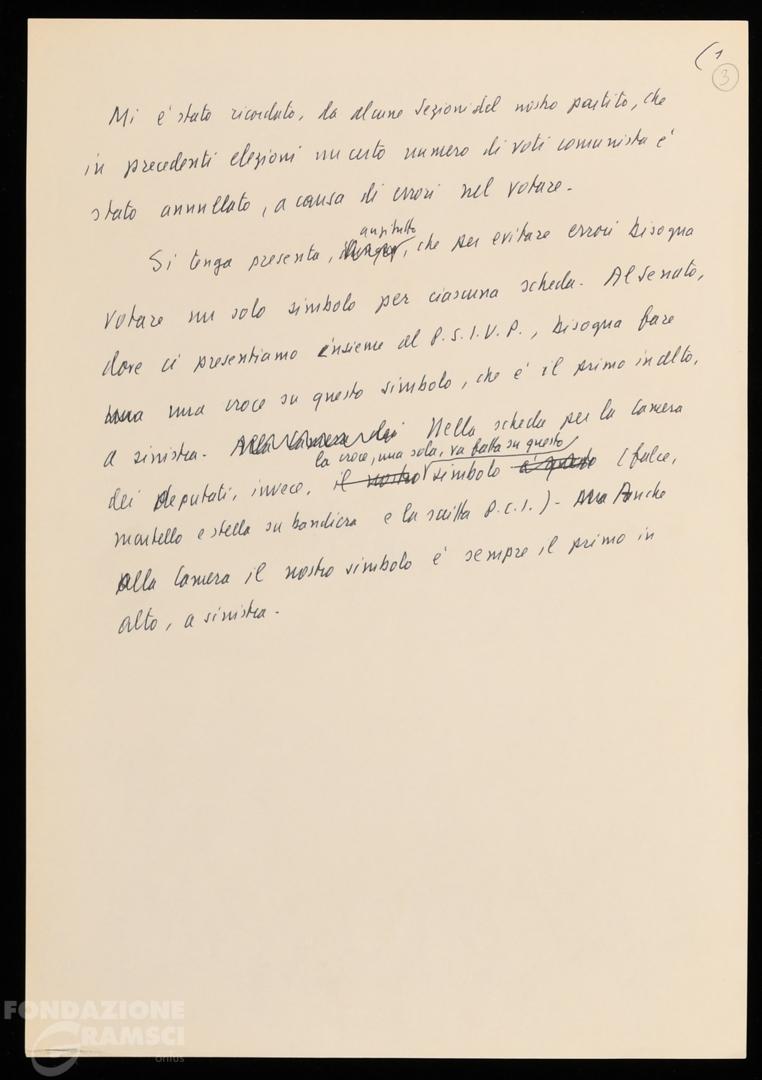 (1
3
Mi é stato ricordato, da alcune sezioni del nostro partito, che
in precedenti elezioni un certo numero di voti comunista é
stato annullato, a causa di errori nel votare.
anzitutto
Si tenga presente, che per evitare errori bisogna
votare un solo simbolo per ciascuna scheda. Al Senato,
dove ci presentiamo insieme al P.S.I.U.P., bisogna fare
una croce su questo simbolo, che é il primo in alto,
a sinistra. Alla Camera dei Nella scheda per la Camera
la croce, una sola, va fatta su questo
dei deputati, invece, il nostro simbolo é questo (falce,
martello e stella su bandiera e la scritta P.C.I.) - Ma Anche
alla Camera il nostro simbolo é sempre il primo in
alto, a sinistra.
FONDAZIONE
GRAMSCI
onlus